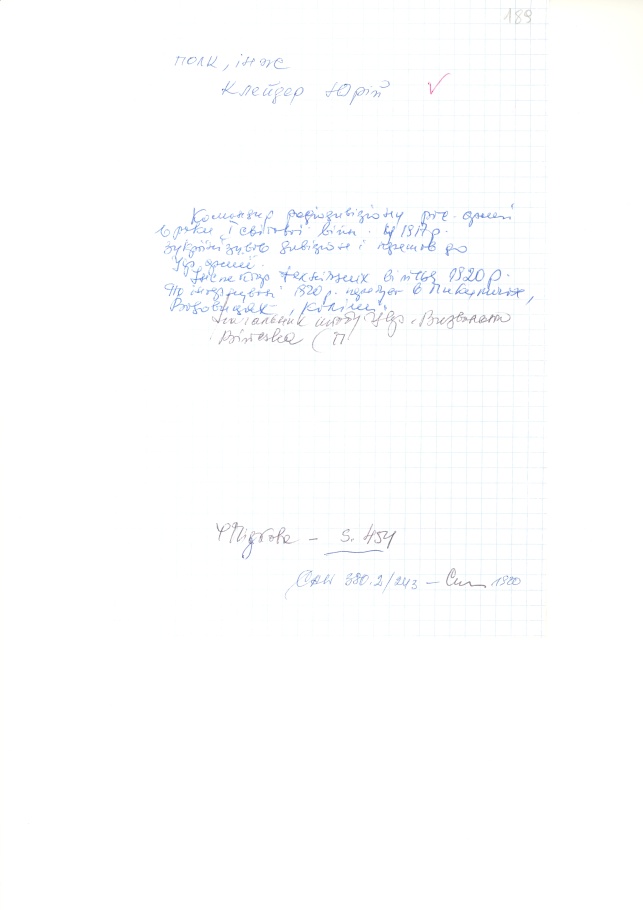 189
полк, інж
Клейдер Юрій
Командир радіодивізіону рос. армії
в роки І світової війн. У 1917 р.
зукраїнізував дивізіон і прийшов до
Укр. армії.
Інспектор технічних військ 1920 р.
1920 р. в Пикуличах,
Вадовицях, Каліші.
Начальник штабу Укр. Визвольного
Війська (П
Підкова – S. 454
САН 380.2/243 – 1920